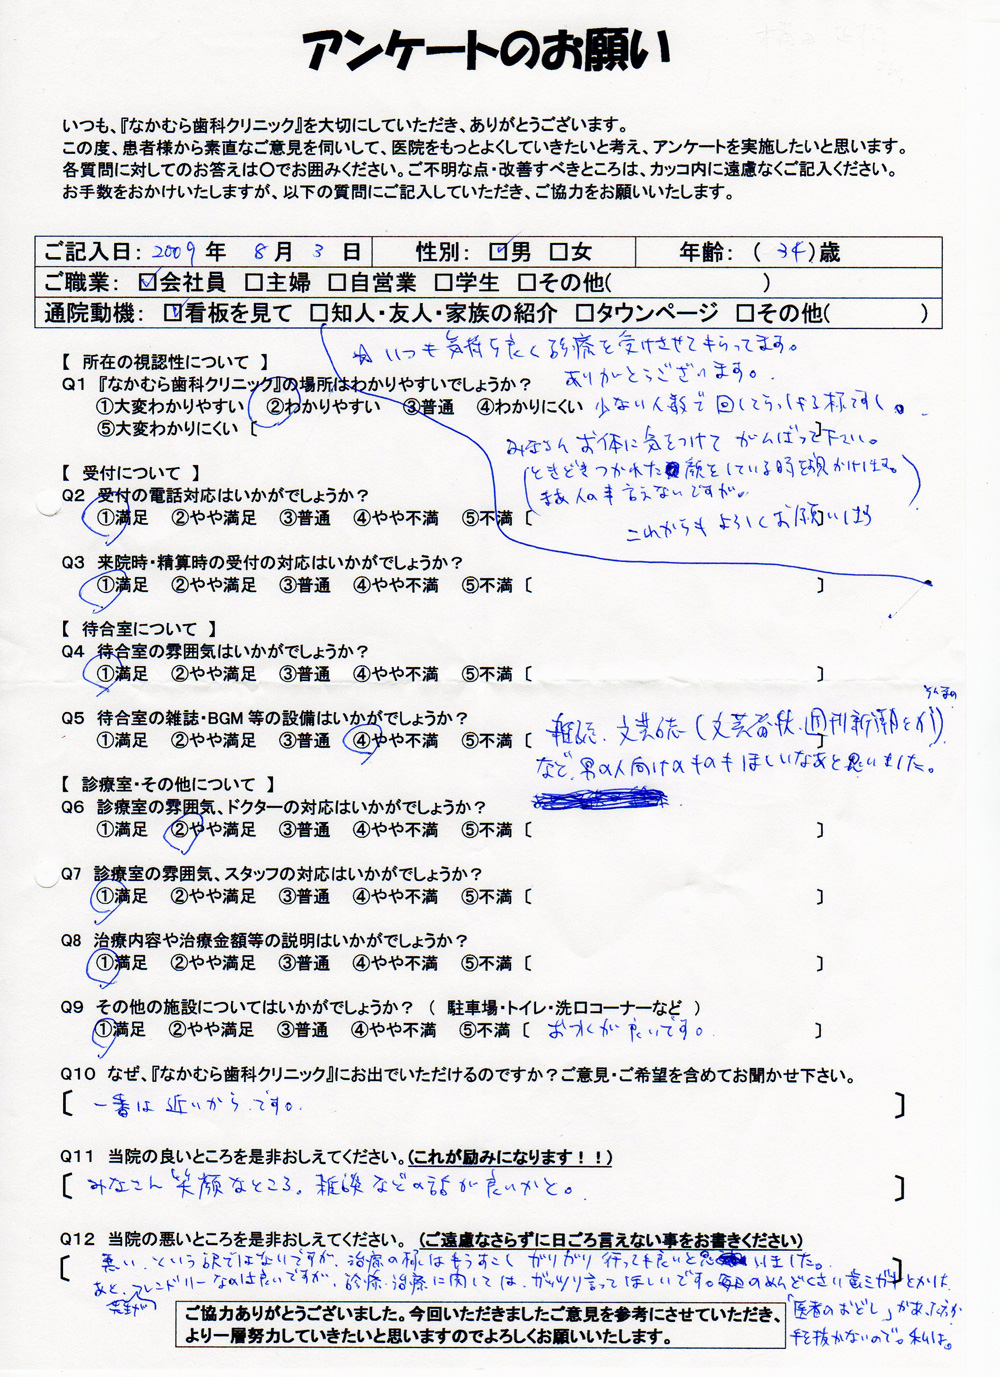 アンケートのお願い
いつも、『なかむら歯科クリニック』を大切にしていただき、ありがとうございます。
この度、患者様から素直なご意見を伺いして、医院をもっとよくしていきたいと考え、アンケートを実施したいと思います。
各質問に対してのお答えは〇でお囲みください。ご不明な点・改善すべきところは、カッコ内に遠慮なくご記入ください。
お手数をおかけいたしますが、以下の質問にご記入していただき、ご協力をお願いいたします。
ご記入日: 2009 年 8 月 3 日 性別: ☑男 □女 年齢: ( 34 )歳
ご職業: ☑会社員 □主婦 □自営業 □学生 □その他( )
通院動機: ☑看板を見て □知人・友人・家族の紹介 □タウンページ □その他( )
☆ いつも気持ち良く診療を受けさせてもらってます。
ありがとうございます。
【 所在の視認性について 】
Q1 『なかむら歯科クリニック』の場所はわかりやすいでしょうか?
①大変わかりやすい ②わかりやすい ③普通 ④わかりにくい
⑤大変わかりにくい [ ]
少ない人数で回してらっしゃる様ですし。
みなさんお体に気をつけてがんばって下さい。
(ときどきつかれた顔をしている時を見かけます。
まあ人の事言えないですが。)
これからもよろしくお願いします
【 受付について 】
Q2 受付の電話対応はいかがでしょうか?
①満足 ②やや満足 ③普通 ④やや不満 ⑤不満 [ ]
Q3 来院時・精算時の受付の対応はいかがでしょうか?
①満足 ②やや満足 ③普通 ④やや不満 ⑤不満 [ ]
【 待合室について 】
Q4 待合室の雰囲気はいかがでしょうか?
①満足 ②やや満足 ③普通 ④やや不満 ⑤不満 [ ]
Q5 待合室の雑誌・BGM 等の設備はいかがでしょうか?
①満足 ②やや満足 ③普通 ④やや不満 ⑤不満 [ 雑誌、文芸誌(文芸春秋、週刊新潮とか)
など、男の人向けのものもほしいなあと思いました。
【 診療室・その他について 】
Q6 診療室の雰囲気、ドクターの対応はいかがでしょうか?
①満足 ②やや満足 ③普通 ④やや不満 ⑤不満 [ ]
Q7 診療室の雰囲気、スタッフの対応はいかがでしょうか?
①満足 ②やや満足 ③普通 ④やや不満 ⑤不満 [ ]
Q8 治療内容や治療金額等の説明はいかがでしょうか?
①満足 ②やや満足 ③普通 ④やや不満 ⑤不満 [ ]
Q9 その他の施設についてはいかがでしょうか? ( 駐車場・トイレ・洗口コーナーなど )
①満足 ②やや満足 ③普通 ④やや不満 ⑤不満 [ お水が良いです。 ]
Q10 なぜ、『なかむら歯科クリニック』にお出でいただけるのですか?ご意見・ご希望を含めてお聞かせ下さい。
[ 一番は近いからです。 ]
Q11 当院の良いところを是非おしえてください。(これが励みになります!!)
[ みなさん笑顔なところ。雑談などの話が良いかと。 ]
Q12 当院の悪いところを是非おしえてください。 (ご遠慮なさらずに日ごろ言えない事をお書きください)
[ 悪い、という訳ではないですが、治療の様はもうすこしガリガリ行っても良いと思いました。
あと、フレンドリーなのは良いですが、診療・治療に関しては、ガッツリ言ってほしいです。毎日のめんどくさい歯ミガキとかは、 ]
「医者のおどし」があった方が
手を抜かないので。私は。
ご協力ありがとうございました。今回いただきましたご意見を参考にさせていただき、
より一層努力していきたいと思いますのでよろしくお願いいたします。